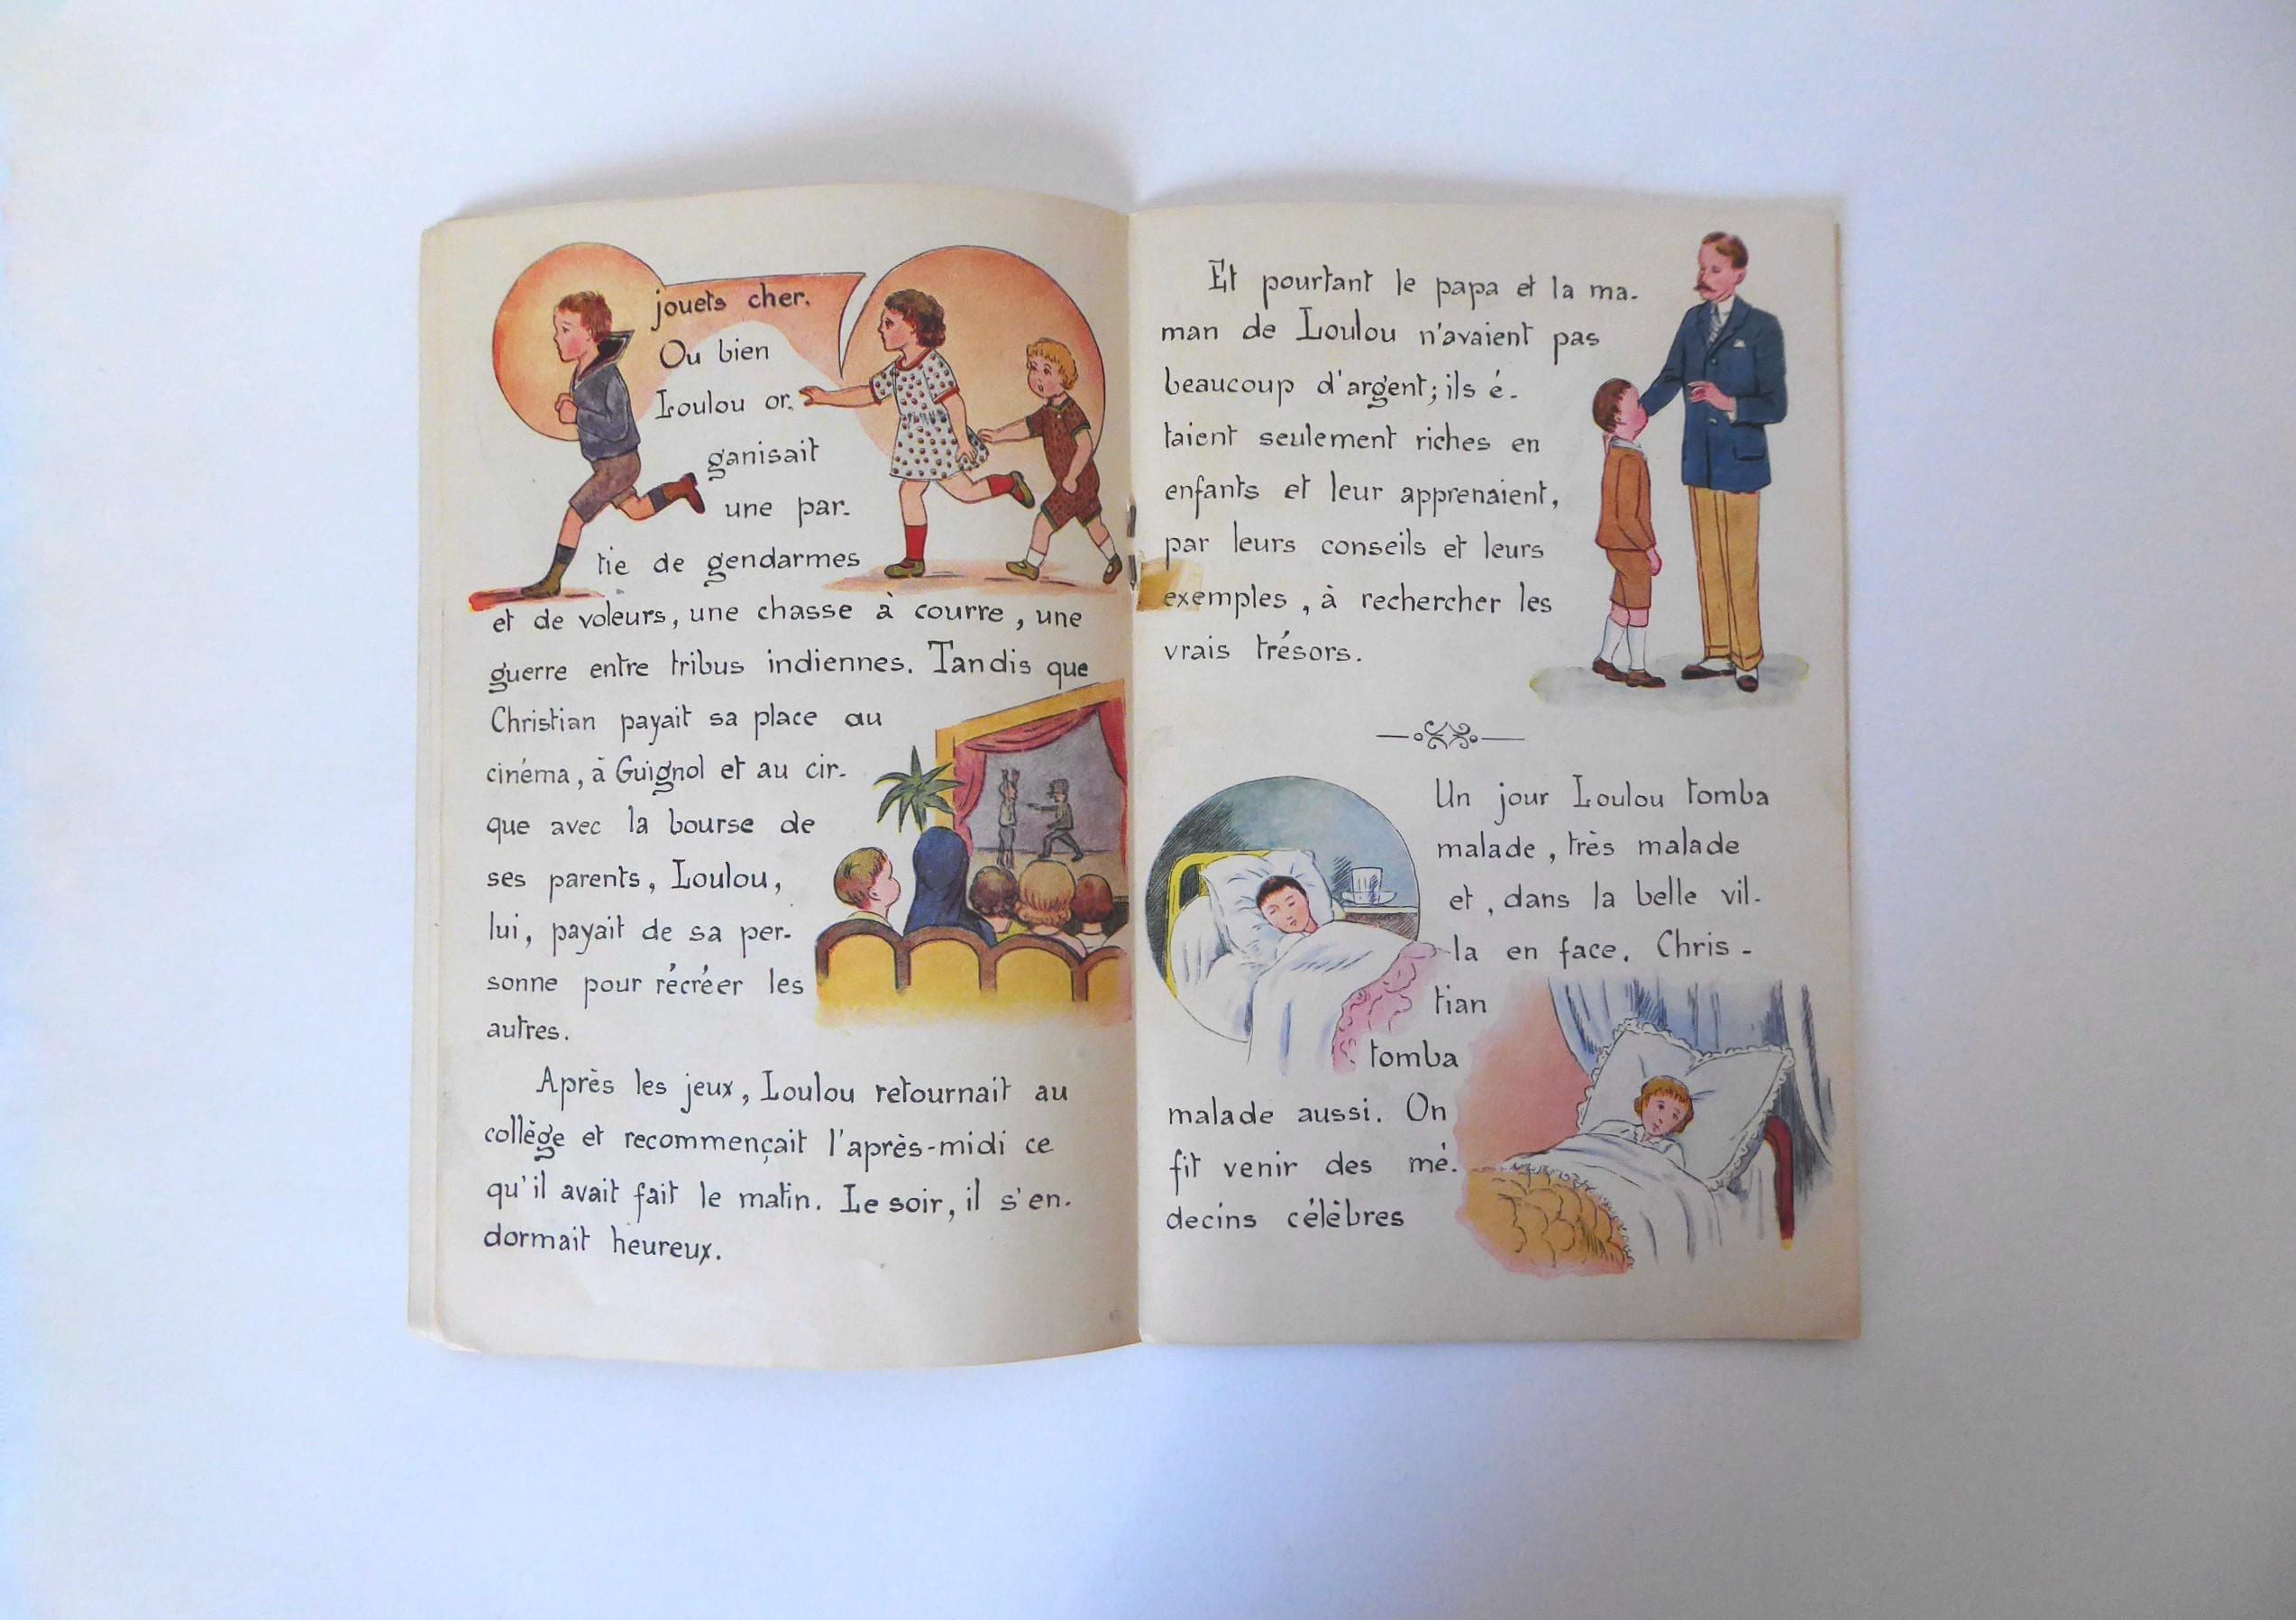 jouets cher.
Ou bien
Loulou or-
ganisait
une par-
tie de gendarmes
et de voleurs, une chasse à courre, une
guerre entre tribus indiennes. Tandis que
Christian payait sa place au
cinéma, à Guignol et au cir-
que avec la bourse de
ses parents, Loulou,
lui, payait de sa per-
sonne pour récréer les
autres.
Après les jeux, Loulou retournait au
collège et recommençait l'après-midi ce
qu'il avait fait le matin. Le soir, il s'en-
dormait heureux.
Et pourtant le papa et la ma-
man de Loulou n'avaient pas
beaucoup d'argent; ils é-
taient seulement riches en
enfants et leur apprenaient,
par leurs conseils et leurs
exemples, à rechercher les
vrais trésors.
Un jour Loulou tomba
malade, très malade
et, dans la belle vil-
la en face, Chris-
tian
tomba
malade aussi. On
fit venir des mé-
decins célèbres